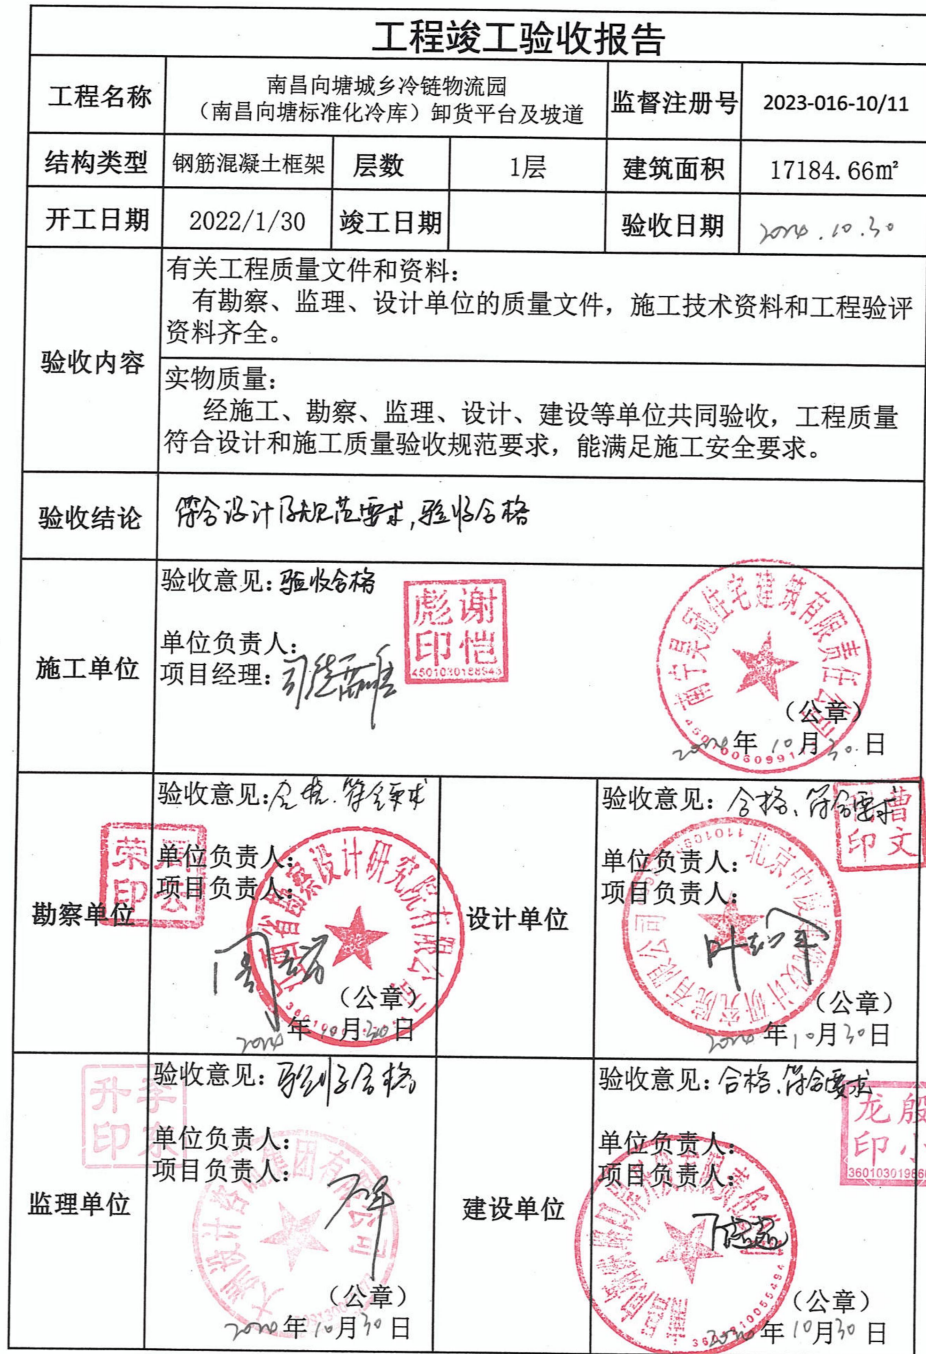 工程竣工验收报告
工程名称
南昌向塘城乡冷链物流园
（南昌向塘标准化冷库）卸货平台及坡道
监督注册号
2023-016-10/11
结构类型
钢筋混凝土框架
层数
1层
建筑面积
17184.66㎡
开工日期
2022/1/30
竣工日期
验收日期
2024.10.30
验收内容
有关工程质量文件和资料：
有勘察、监理、设计单位的质量文件，施工技术资料和工程验评
资料齐全。
实物质量：
经施工、勘察、监理、设计、建设等单位共同验收，工程质量
符合设计和施工质量验收规范要求，能满足施工安全要求。
验收结论
符合设计及规范要求,验收合格
施工单位
验收意见：验收合格
单位负责人：
项目经理：
彪谢
印恺
南宁昊冠住宅建筑有限责任公司
（公章）
2024年10月30日
勘察单位
验收意见：合格.符合要求
单位负责人：
项目负责人：
荣
印
江西省勘察设计研究院有限公司
（公章）
2024年10月30日
设计单位
验收意见：合格、符合要求
单位负责人：
项目负责人：
曹
印文
（公章）
2024年10月30日
监理单位
验收意见：验收合格
单位负责人：
项目负责人：
升李
印
（公章）
2024年10月30日
建设单位
验收意见：合格、符合要求
单位负责人：
项目负责人：
龙殷
印小
（公章）
2024年10月30日